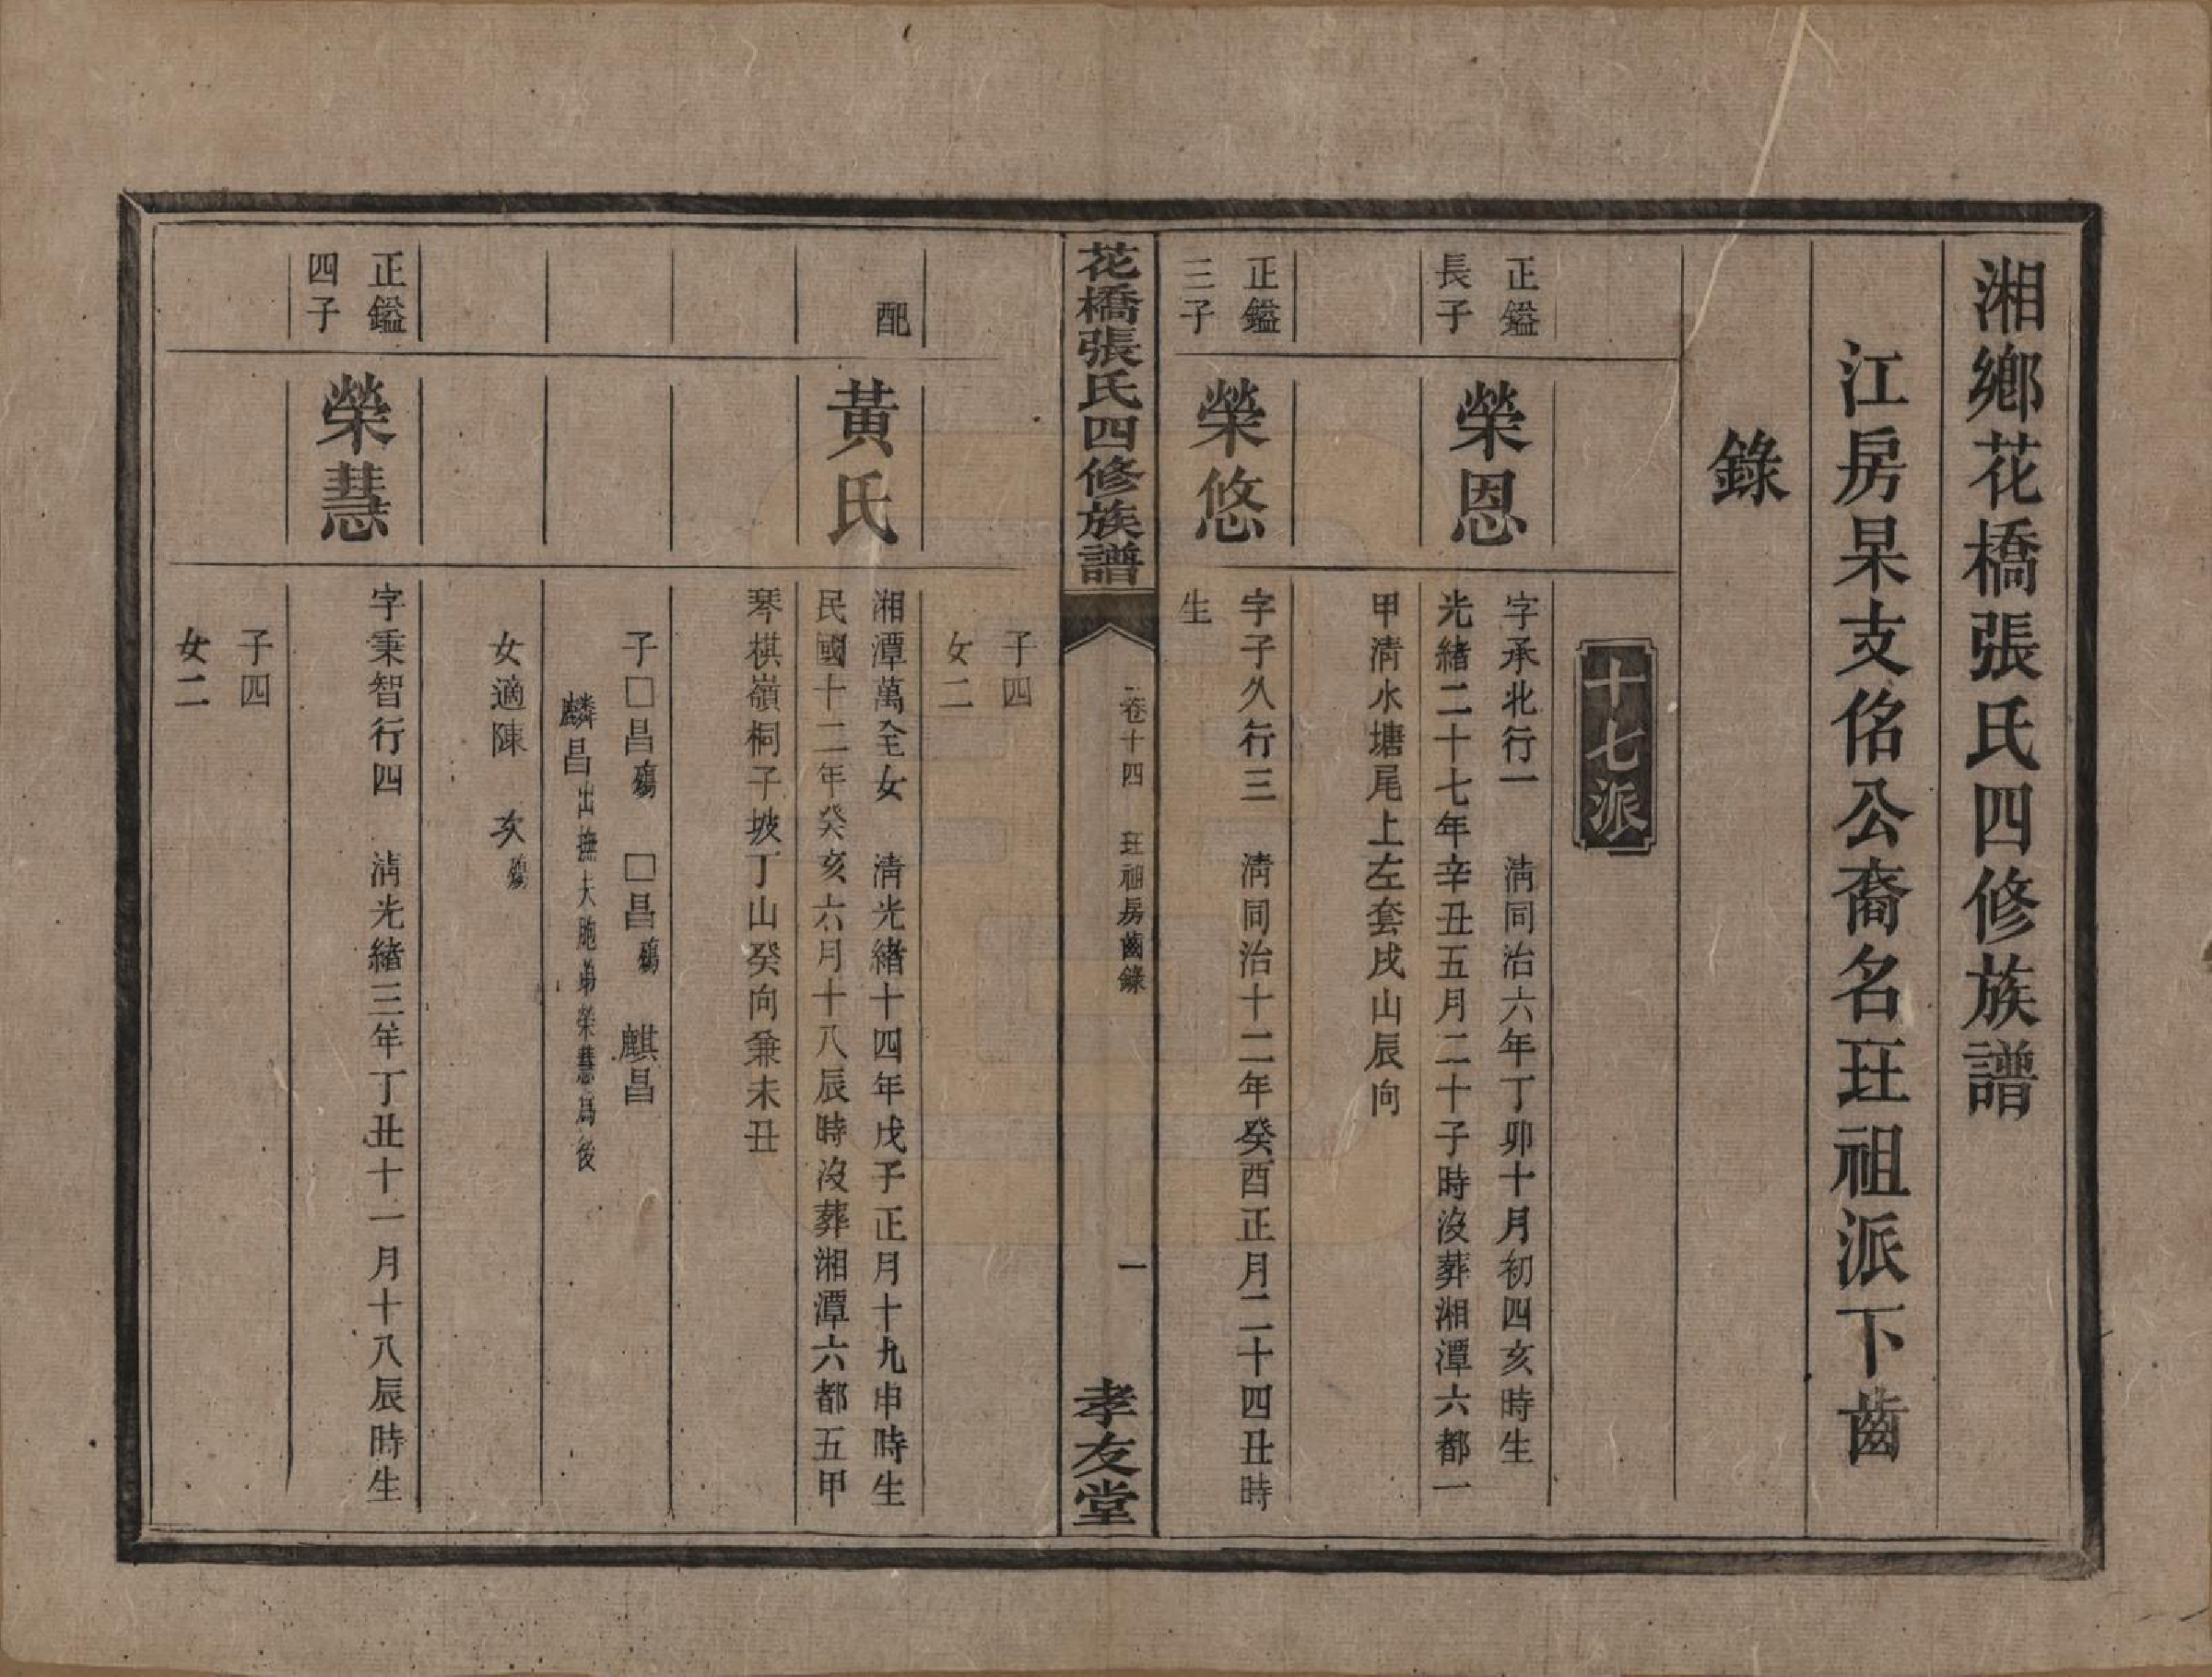 湘鄉花橋張氏四修族譜
江房杲支佲公裔名珏祖派下齒
錄
十七派
正鎰
長子
榮恩
字承北行一 清同治六年丁卯十月初四亥時生
光緒二十七年辛丑五月二十子時沒葬湘潭六都一
甲清水塘尾上左套戌山辰向
正鎰
三子
榮悠
字子久行三 清同治十二年癸酉正月二十四丑時
生
花橋張氏四修族譜
卷十四 祖房齒錄
一
孝友堂
子四
女二
配
黃氏
湘潭萬全女 清光緒十四年戊子正月十九申時生
民國十二年癸亥六月十八辰時沒葬湘潭六都五甲
琴棋嶺桐子坡丁山癸向兼未丑
子□昌殤 □昌殤 麒昌
麟昌出撫大胞弟榮慧爲後
女適陳 次殤
正鎰
四子
榮慧
字秉智行四 清光緒三年丁丑十一月十八辰時生
子四
女二